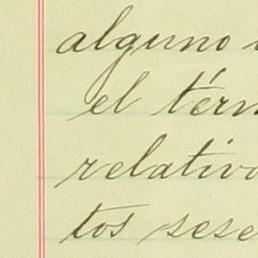 alguno
el térm
relativo
tos sese